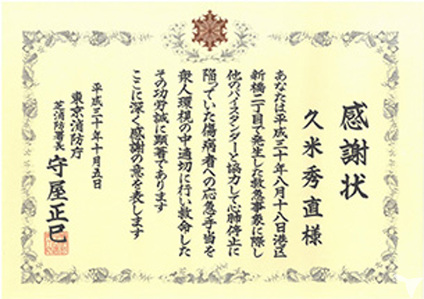 感謝状
久米秀直様
あなたは平成三十年八月十八日港区
新橋二丁目で発生した救急事象に際し
他のバイスタンダーと協力して心肺停止に
陥っていた傷病者への応急手当を
衆人環視の中適切に行い救命した
その功労誠に顕著であります
ここに深く感謝の意を表します
平成三十年十月五日
東京消防庁
芝消防署長 守屋正巳